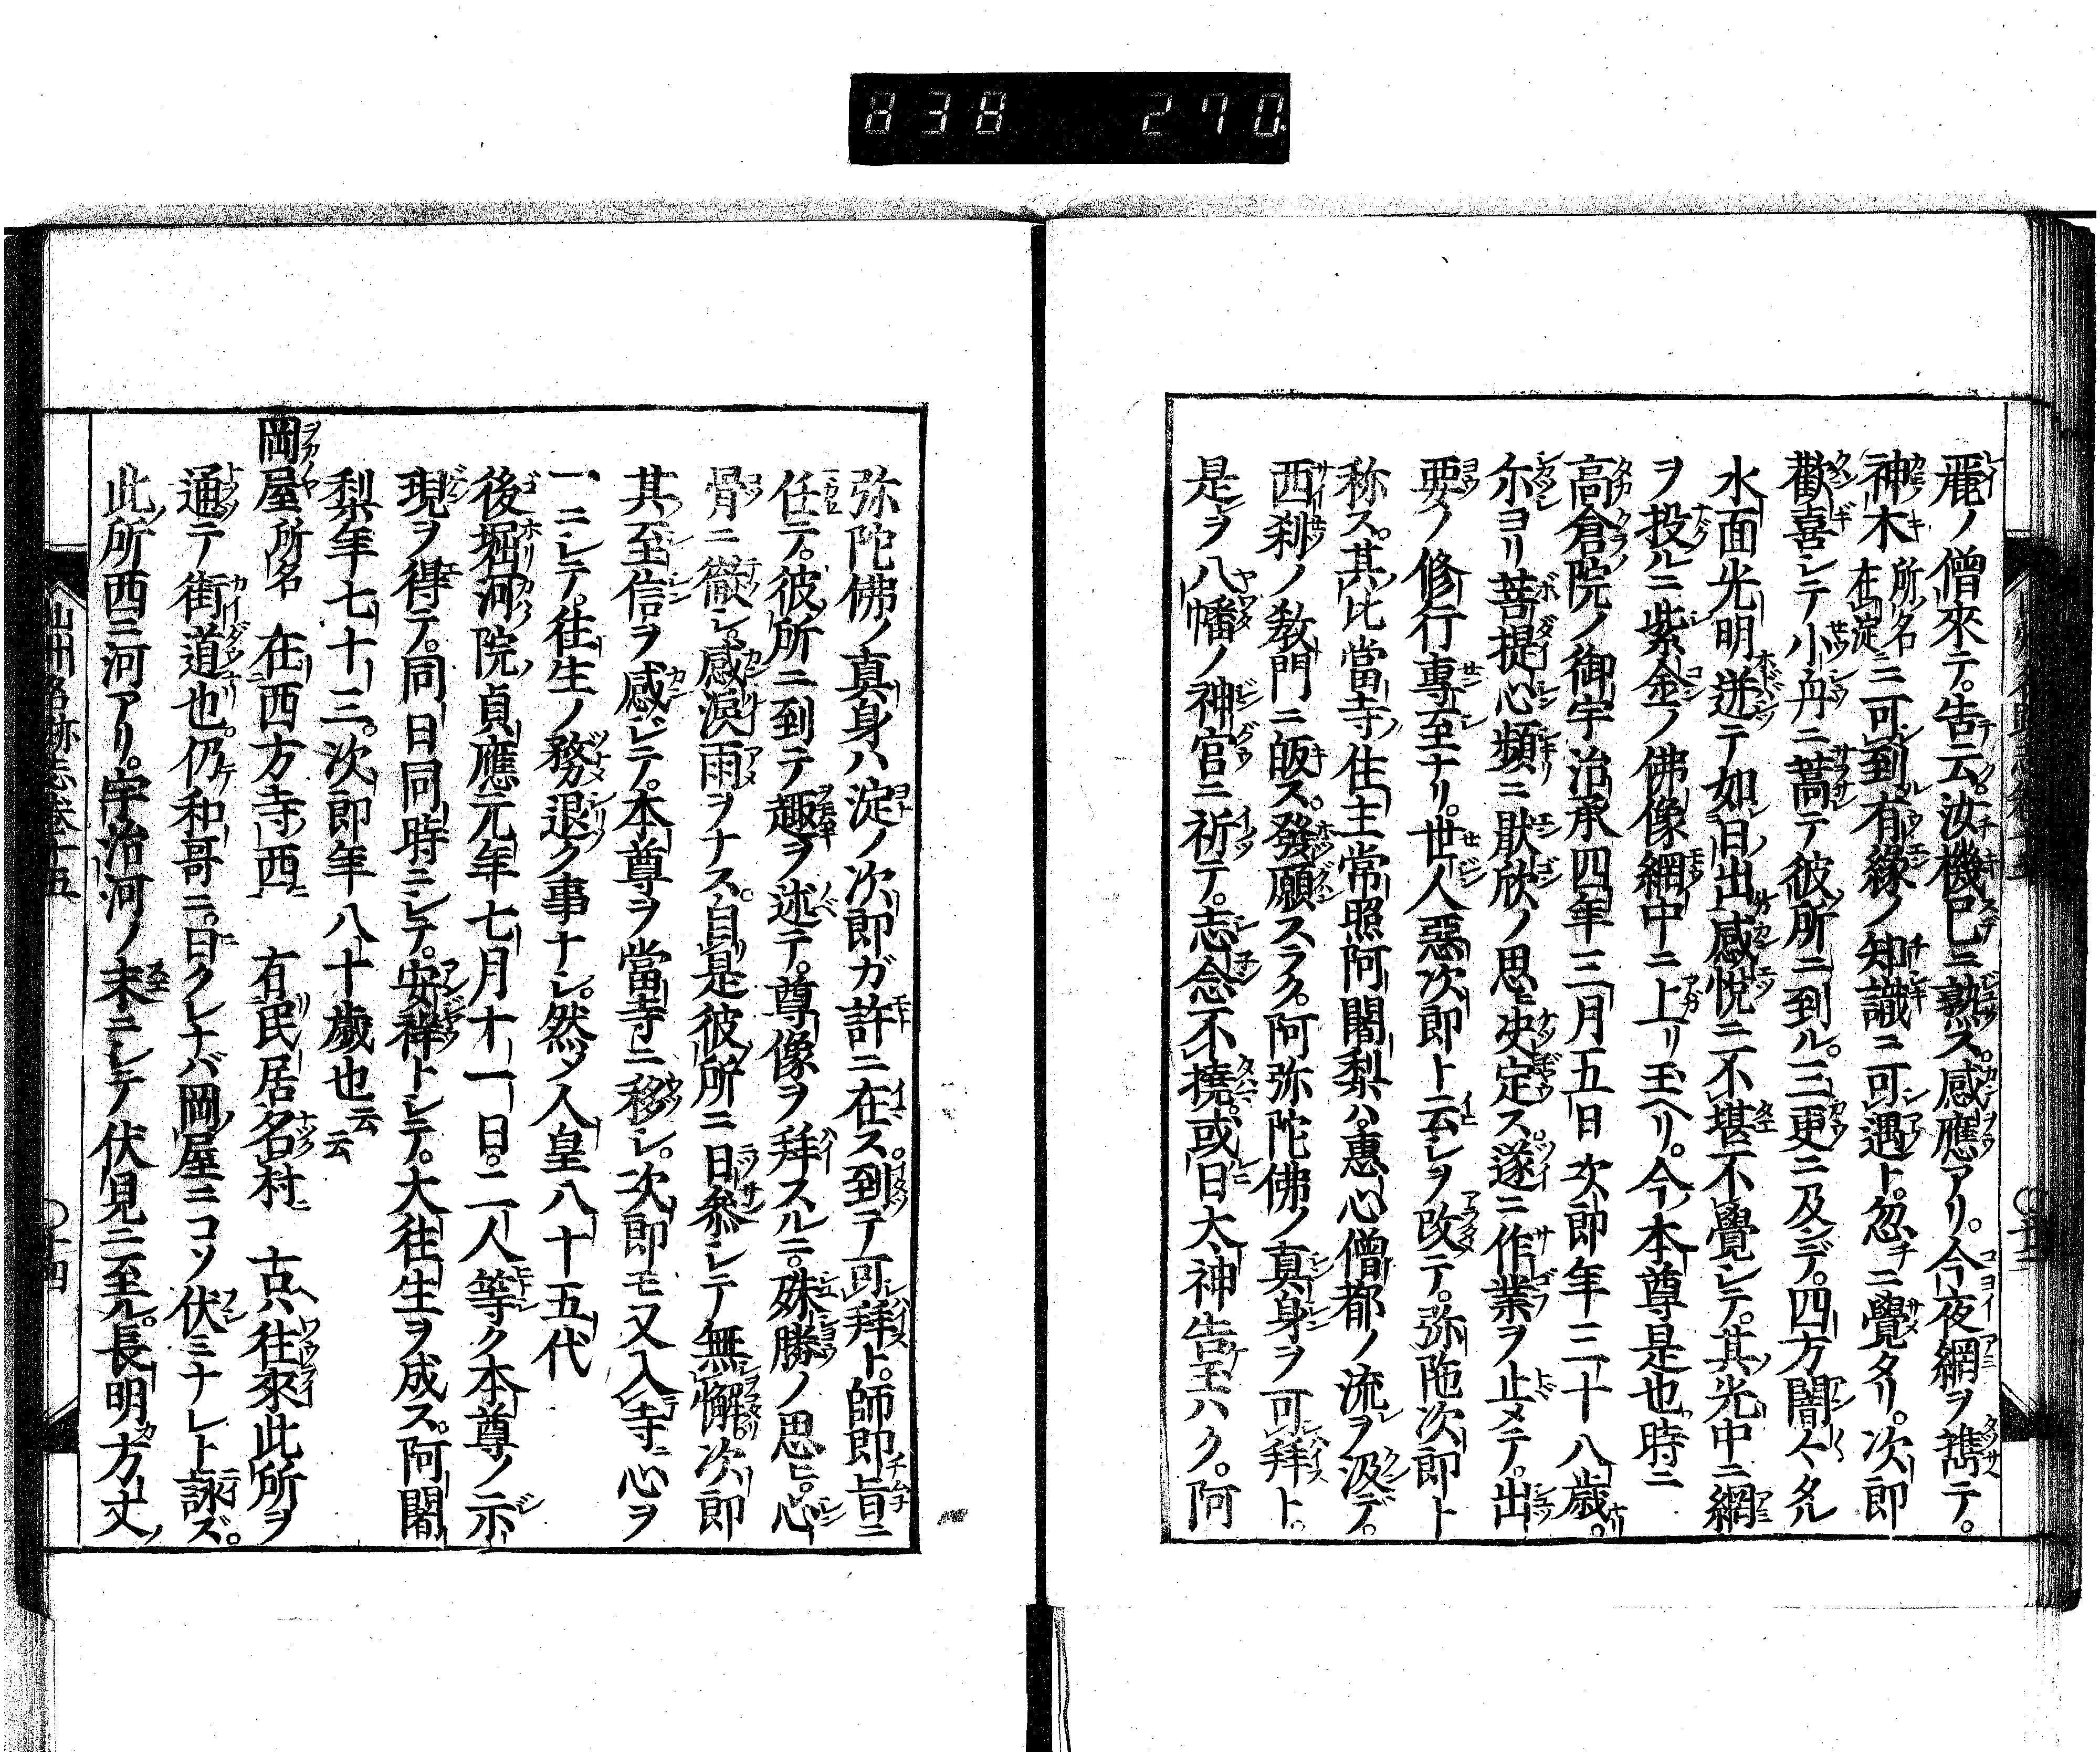 838 270
麗ノ僧來テ。告云。汝機已ニ熟ズ。感應アリ。今夜網ヲ携テ。
神木所名在淀ニ可到有縁ノ知識ニ可遇ト。忽ニ覺タリ。次郎
歡喜シテ小舟ニ蒿テ彼所ニ到ル。三更ニ及ンデ。四方闇々タル
水面光明迸テ如日出感悦ニ不堪不覺シテ。其光中ニ網
ヲ投ルニ紫金ノ佛像網中ニ上リ玉ヘリ。今本尊是也時ニ
高倉院ノ御宇治承四年三月五日次郎年三十八歳。
尓ヨリ菩提心頻ニ猒欣ノ思ヒ决定ス遂ニ作業ヲ止メテ。出
要ノ修行專至ナリ。世人惡次郎ト云シヲ改テ。弥陁次郎ト
称ス。其比當寺住主常照阿闍梨ハ。惠心僧都ノ流ヲ汲デ。
西刹ノ敎門ニ皈ス。發願スラク。阿弥陀佛ノ真身ヲ可拜ト。
是ヲ八幡ノ神官ニ祈テ。志念不撓或日太神告玉ハク。阿
弥陀佛ノ真身ハ淀ノ次郎ガ許ニ在ス。到テ可拜ト。師即旨ニ
任テ。彼所ニ到テ趣ヲ述テ。尊像ヲ拜スルニ。殊勝ノ思ヒ。心
骨ニ徹シ。感涙雨ヲナス。自是彼所ニ日參シテ無懈次郎
其至信ヲ感ジテ。本尊ヲ當寺ニ移シ。次郎モ又入寺ニ心ヲ
一ニシテ。往生ノ務退ク事ナシ。然メ人皇八十五代
後堀河院貞應元年七月十一日。二人等ク本尊ノ示
現ヲ得テ。同日同時ニシテ。安祥トシテ。大往生ヲ成ス。阿闍
梨年七十三。次郎年八十歳也云云
岡屋所名 在西方寺西 有民居名村 古ハ往來此所ヲ
通テ街道也。仍和哥ニ。日クレナバ岡屋ニコソ伏ミナレト詠ズ。
此所西ニ河アリ。宇治河ノ末ニシテ伏見ニ至ル。長明方丈
山州名跡志卷十五